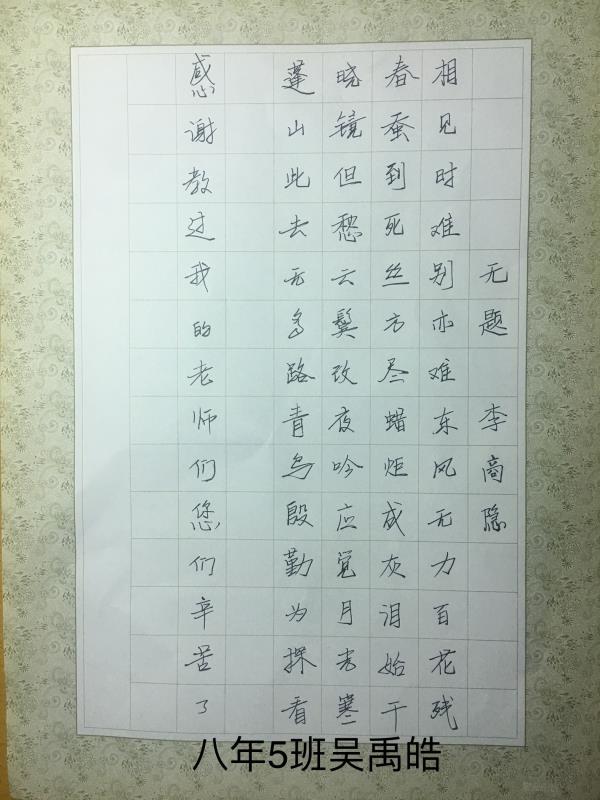 无题 李商隐
相见时难别亦难东风无力百花残
春蚕到死丝方尽蜡炬成灰泪始干
晓镜但愁云鬓改夜吟应觉月光寒
蓬山此去无多路青鸟殷勤为探看
感谢教过我的老师们您们辛苦了
八年5班吴禹皓